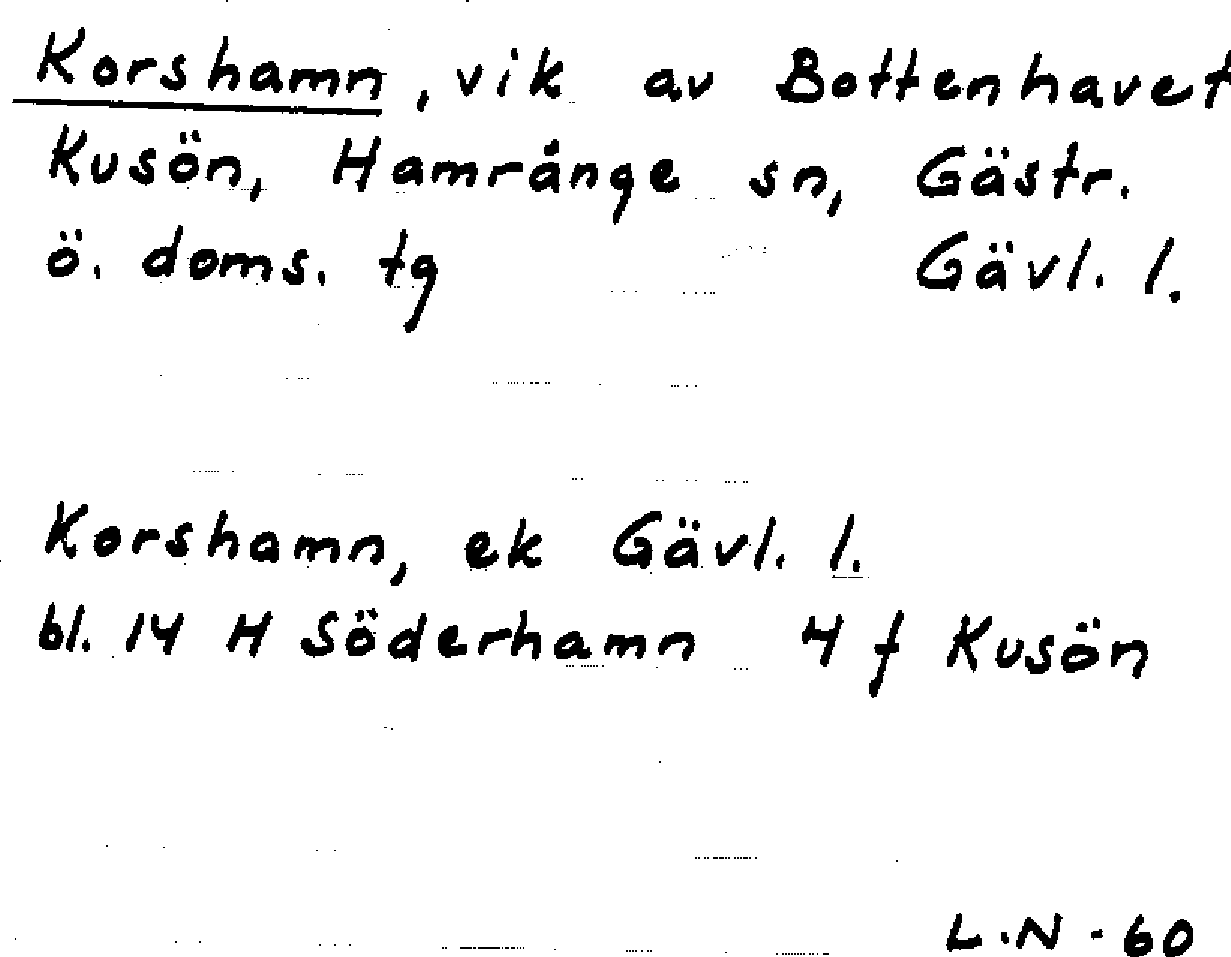 Korshamn, vik av Bottenhavet
Kusön, Hamrånge sn, Gästr.
ö. doms. tg Gävl. l.
Korshamn, ek Gävl. l.
bl. 14 H Söderhamn 4 f Kusön
L.N - 60